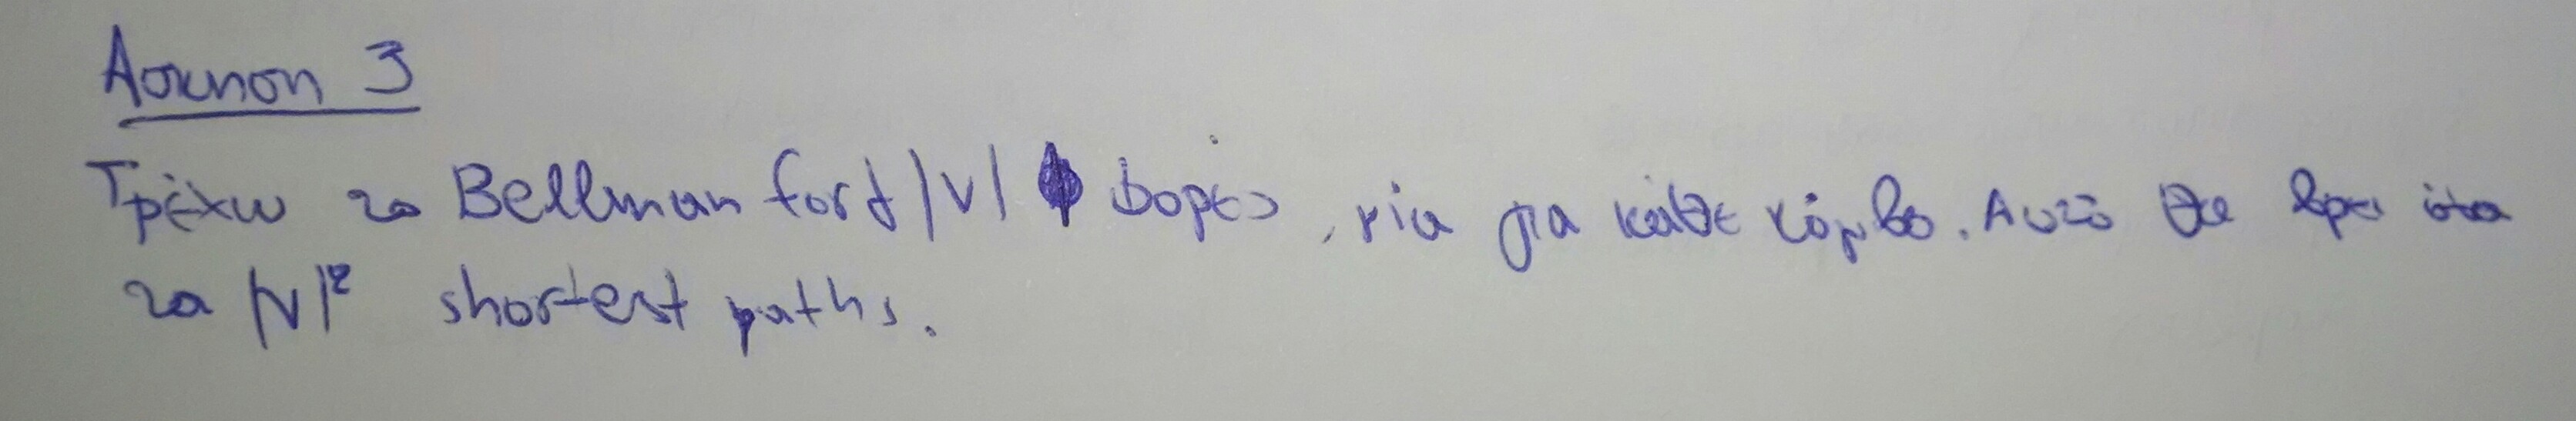 Άσκηση 3
Τρέχω το Bellman ford |V| φορές, μία για κάθε κόμβο. Αυτό θα βρει όλα
τα |V|² shortest paths.